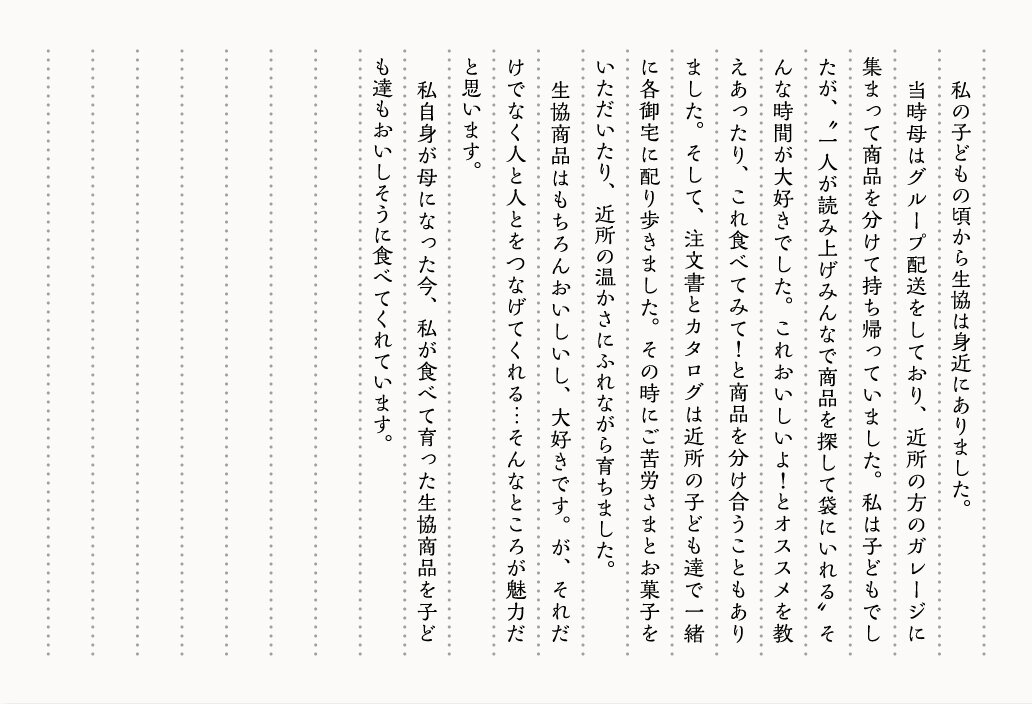 私の子どもの頃から生協は身近にありました。
　当時母はグループ配送をしており、近所の方のガレージに
集まって商品を分けて持ち帰っていました。私は子どもでし
たが、〝一人が読み上げみんなで商品を探して袋にいれる〟そ
んな時間が大好きでした。これおいしいよ！とオススメを教
えあったり、これ食べてみて！と商品を分け合うこともあり
ました。そして、注文書とカタログは近所の子ども達で一緒
に各御宅に配り歩きました。その時にご苦労さまとお菓子を
いただいたり、近所の温かさにふれながら育ちました。
　生協商品はもちろんおいしいし、大好きです。が、それだ
けでなく人と人とをつなげてくれる…そんなところが魅力だ
と思います。
　私自身が母になった今、私が食べて育った生協商品を子ど
も達もおいしそうに食べてくれています。